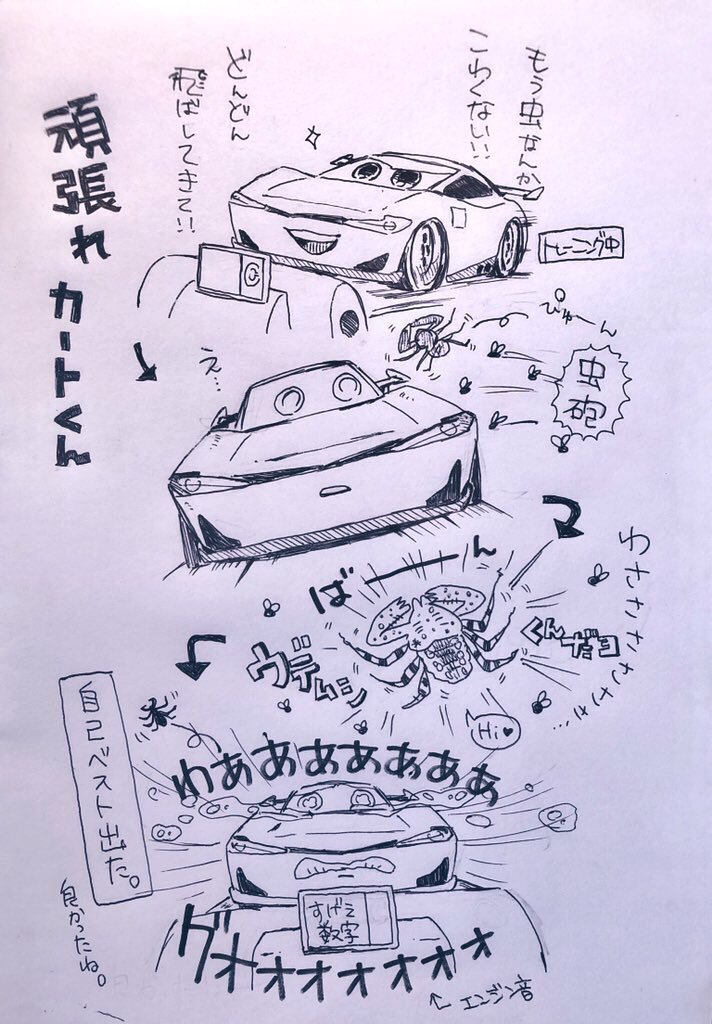 もう虫なんか
こわくない!!
どんどん
飛ばしてきて!!
頑張れ カートくん
トレーニング中
ぴゅーん
虫砲
え…
ばーん
わささささささ…
ウデムシ
くんだヨ
Hi♥
自己ベスト出た。
良かったね。
わあああああああ
すげえ
数字
グオオオオオオオ
←エンジン音